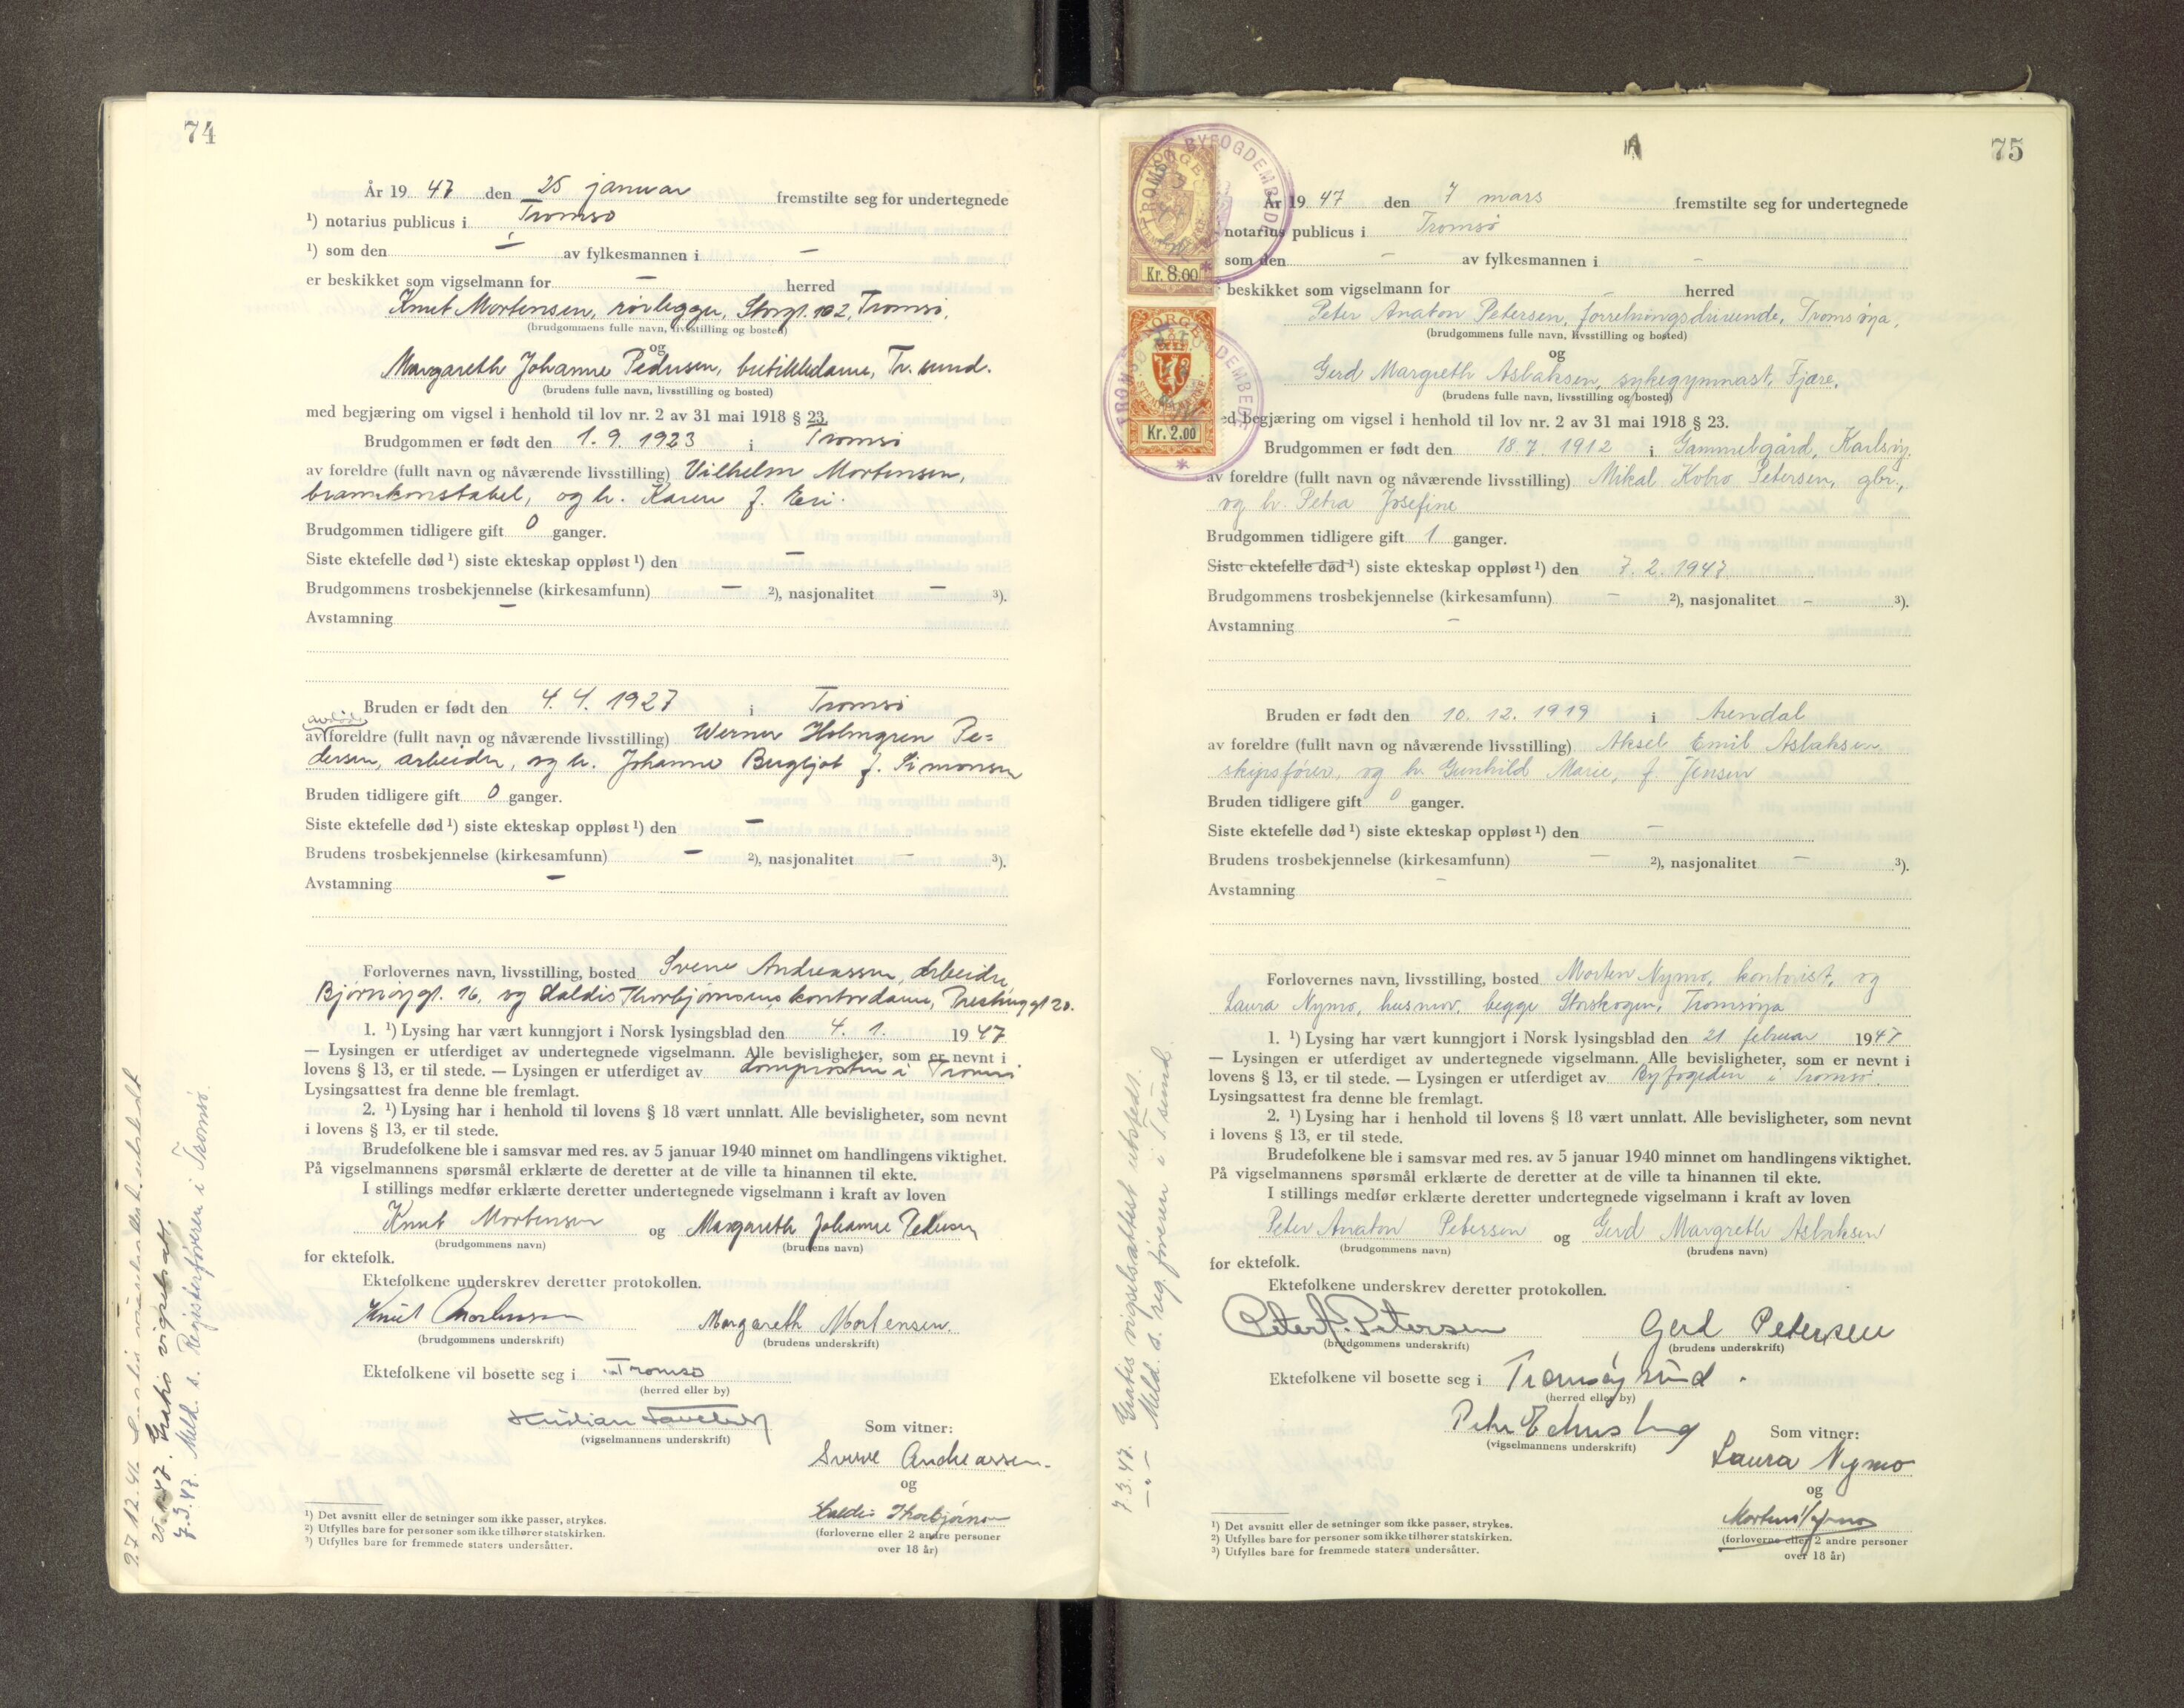 74
År 19 47 den 25 januar fremstilte seg for undertegnede
¹) notarius publicus i Tromsø
¹) som den — av fylkesmannen i —
er beskikket som vigselmann for — herred
Knut Mortensen, rørlegger, Storgt. 102, Tromsø.
(brudgommens fulle navn, livsstilling og bosted)
og
Margareth Johanne Pedersen, butikkdame, Tr. sund.
(brudens fulle navn, livsstilling og bosted)
med begjæring om vigsel i henhold til lov nr. 2 av 31 mai 1918 § 23.
Brudgommen er født den 1. 9. 1923 i Tromsø
av foreldre (fullt navn og nåværende livsstilling) Vilhelm Mortensen,
brannkonstabel, og h. Karen f. Eri.
Brudgommen tidligere gift 0 ganger.
Siste ektefelle død ¹) siste ekteskap oppløst ¹) den —
Brudgommens trosbekjennelse (kirkesamfunn) — ²), nasjonalitet — ³).
Avstamning —
Bruden er født den 4. 4. 1927 i Tromsø
avdøde
av foreldre (fullt navn og nåværende livsstilling) Werner Holmgren Pe=
dersen, arbeider, og h. Johanne Bergljot f. Simonsen
Bruden tidligere gift 0 ganger.
Siste ektefelle død ¹) siste ekteskap oppløst ¹) den —
Brudens trosbekjennelse (kirkesamfunn) — ²), nasjonalitet — ³).
Avstamning —
Forlovernes navn, livsstilling, bosted Sverre Andreassen, arbeider
Bjørnøygt. 16, og Haldis Thorbjørnsen, kontordame, gt 20.
1. ¹) Lysing har vært kunngjort i Norsk lysingsblad den 4. 1. 19 47
— Lysingen er utferdiget av undertegnede vigselmann. Alle bevisligheter, som er nevnt i
lovens § 13, er til stede. — Lysingen er utferdiget av domprosten i Tromsø
Lysingsattest fra denne ble fremlagt.
2. ¹) Lysing har i henhold til lovens § 18 vært unnlatt. Alle bevisligheter, som nevnt
i lovens § 13, er til stede.
Brudefolkene ble i samsvar med res. av 5 januar 1940 minnet om handlingens viktighet.
På vigselmannens spørsmål erklærte de deretter at de ville ta hinannen til ekte.
I stillings medfør erklærte deretter undertegnede vigselmann i kraft av loven
Knut Mortensen og Margareth Johanne Pedersen
(brudgommens navn) (brudens navn)
for ektefolk.
Ektefolkene underskrev deretter protokollen.
Knut Mortensen Margareth Mortensen.
(brudgommens underskrift) (brudens underskrift)
Ektefolkene vil bosette seg i Tromsø
(herred eller by)
Kristian
(vigselmannens underskrift)
Som vitner:
Sverre Andreassen.
og
Haldis Thorbjørnsen
(forloverne eller 2 andre personer
over 18 år)
¹) Det avsnitt eller de setninger som ikke passer, strykes.
²) Utfylles bare for personer som ikke tilhører statskirken.
³) Utfylles bare for fremmede staters undersåtter.
25.1.47. Gratis vigselsatt.
7.3.47. Meld. s. Registerføreren i Tromsø.
75
TROMSØ BYFOGDEMBEDE
NORGE
Kr. 8.00
NORGE
STEMPELMERKE
Kr. 2.00
TROMSØ BYFOGDEMBEDE
År 19 47 den 7 mars fremstilte seg for undertegnede
notarius publicus i Tromsø
som den — av fylkesmannen i —
beskikket som vigselmann for — herred
Peter Anaton Petersen, forretningsdrivende, Tromsøya,
(brudgommens fulle navn, livsstilling og bosted)
og
Gerd Margreth Aslaksen, sykegymnast, Fjære,
(brudens fulle navn, livsstilling og bosted)
ed begjæring om vigsel i henhold til lov nr. 2 av 31 mai 1918 § 23.
Brudgommen er født den 18. 7. 1912 i Gammelgård, Karlsøy.
av foreldre (fullt navn og nåværende livsstilling) Mikal Kobro Petersen, gbr.,
og h. Petra Josefine
Brudgommen tidligere gift 1 ganger.
Siste ektefelle død ¹) siste ekteskap oppløst ¹) den 7. 2. 1947
Brudgommens trosbekjennelse (kirkesamfunn) — ²), nasjonalitet — ³).
Avstamning —
Bruden er født den 10. 12. 1919 i Arendal
av foreldre (fullt navn og nåværende livsstilling) Aksel Emil Aslaksen
skipsfører, og h. Gunhild Marie, f. Jensen
Bruden tidligere gift 0 ganger.
Siste ektefelle død ¹) siste ekteskap oppløst ¹) den —
Brudens trosbekjennelse (kirkesamfunn) — ²), nasjonalitet — ³).
Avstamning —
Forlovernes navn, livsstilling, bosted Morten Nymo, kontorist, og
Laura Nymo, husmor, begge Storskogen, Tromsøya
1. ¹) Lysing har vært kunngjort i Norsk lysingsblad den 21 februar 1947
— Lysingen er utferdiget av undertegnede vigselmann. Alle bevisligheter, som er nevnt i
lovens § 13, er til stede. — Lysingen er utferdiget av Byfogden i Tromsø.
Lysingsattest fra denne ble fremlagt.
2. ¹) Lysing har i henhold til lovens § 18 vært unnlatt. Alle bevisligheter, som nevnt
i lovens § 13, er til stede.
Brudefolkene ble i samsvar med res. av 5 januar 1940 minnet om handlingens viktighet.
På vigselmannens spørsmål erklærte de deretter at de ville ta hinannen til ekte.
I stillings medfør erklærte deretter undertegnede vigselmann i kraft av loven
Peter Anaton Petersen og Gerd Margreth Aslaksen
(brudgommens navn) (brudens navn)
for ektefolk.
Ektefolkene underskrev deretter protokollen.
Peter A. Petersen Gerd Petersen
(brudgommens underskrift) (brudens underskrift)
Ektefolkene vil bosette seg i Tromsøysund.
(herred eller by)
(vigselmannens underskrift)
Som vitner:
Laura Nymo
og
Morten Nymo
(forloverne eller 2 andre personer
over 18 år)
¹) Det avsnitt eller de setninger som ikke passer, strykes.
²) Utfylles bare for personer som ikke tilhører statskirken.
³) Utfylles bare for fremmede staters undersåtter.
7.3.47. Gratis vigselsattest utstedt.
—"— Meld. s. reg. føreren i T.sund.